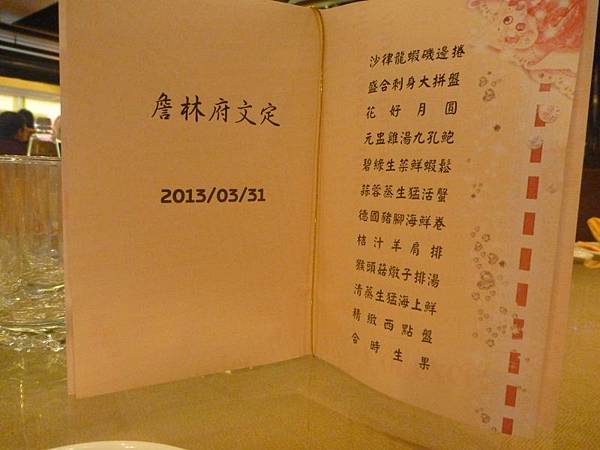 詹林府文定
2013/03/31
沙律龍蝦磯邊捲
盛合刺身大拼盤
花好月圓
元盅雞湯九孔鮑
碧綠生菜鮮蝦鬆
蒜蓉蒸生猛活蟹
德國豬腳海鮮卷
桔汁羊肩排
猴頭菇燉子排湯
清蒸生猛海上鮮
精緻西點盤
合時生果